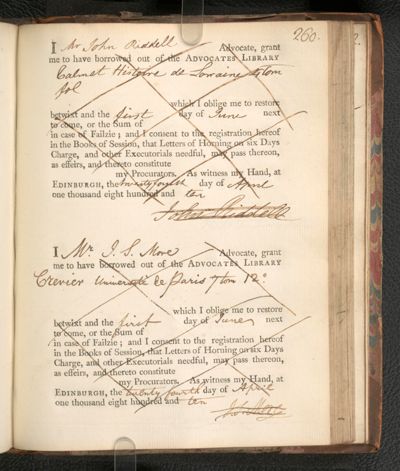 260.
I Mr John Riddell Advocate, grant
me to have borrowed out of the ADVOCATES LIBRARY
Calmet Histoire de Lorraine 4 tom
fol
which I oblige me to restore
betwixt and the first day of June next
to come, or the Sum of
in case of Failzie; and I consent to the registration hereof
in the Books of Session, that Letters of Horning on six Days
Charge, and other Executorials needful, may pass thereon,
as effeirs, and thereto constitute
my Procurators. As witness my Hand, at
EDINBURGH, the twenty fourth day of April
one thousand eight hundred and ten
John Riddell
I Mr. J. S. More Advocate, grant
me to have borrowed out of the ADVOCATES LIBRARY
Crevier Université de Paris 7 tom 12o.
which I oblige me to restore
betwixt and the first day of June next
to come, or the Sum of
in case of Failzie; and I consent to the registration hereof
in the Books of Session, that Letters of Horning on six Days
Charge, and other Executorials needful, may pass thereon,
as effeirs, and thereto constitute
my Procurators. As witness my Hand, at
EDINBURGH, the twenty fourth day of April
one thousand eight hundred and ten
More